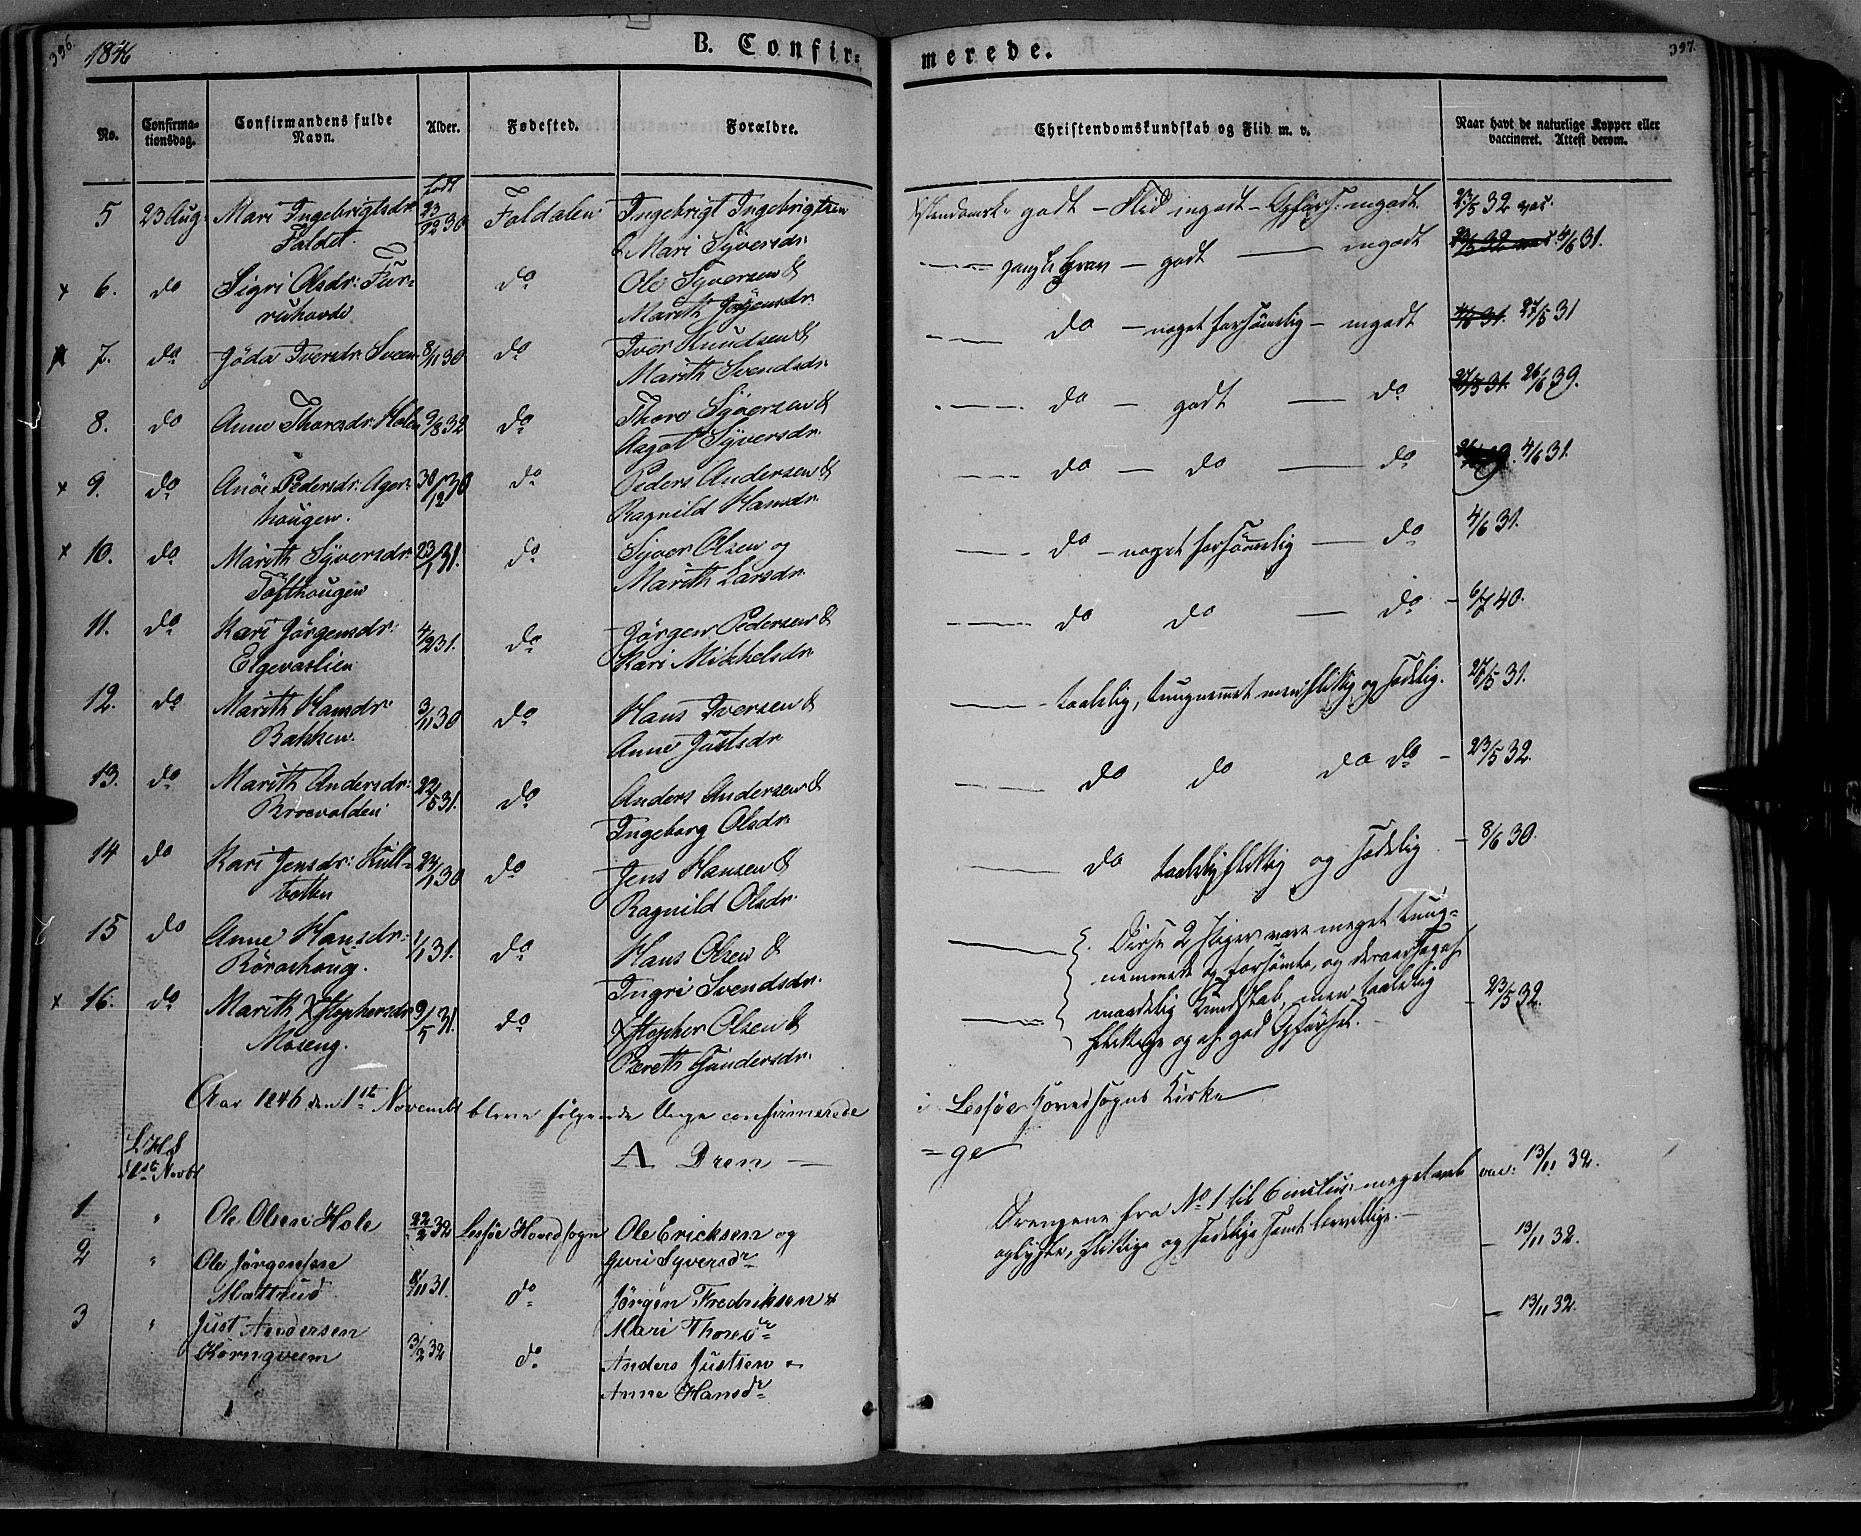 396.
1846
B. Confir-
merede.
397.
No.
Confirma-
tionsdag.
Confirmandens fulde
Navn.
Alder.
Fødested.
Forældre.
Christendomskundskab og Flid m. v.
Naar havt de naturlige Kopper eller
vaccineret. Attest derom.
født
5 23 Aug: Mari Ingebrigtsdr: 23/12 30 Foldalen Ingebrigt Ingebrigtsen
Foldet. & Mari Syversdr.
godt — Flid mgodt — Opførs: mgodt. 23/5 32 vac.
x 6. do Sigri Olsdr: Fur- do Ole Syversen &
ruhovde Marith Jörgensdr.
— godt — mgodt 23/5 32 vac. 4/6 31.
x 7. do Jöda Iversdr: Sveen 8/11 30 do Iver Knudsen &
Marith Svendsdr.
do — noget forsömelig — mgodt 4/6 31. 27/5 31
8. do Anne Thoresdr: Holen 9/8 32 do Thore Syversen &
Aagot Syversdr.
do — godt — do 27/5 31. 26/6 39.
x 9. do Anöe Pedersdr: Ager- 30/12 30 do Peder Andersen &
hougen. Ragnild Hansdr.
do — do — do 4/6 31.
x 10. do Marith Syversdr: 23/1 31. do Syver Olsen og
Tofthougen Marith Larsdr.
do — noget forsömmelig — do 4/6 31.
11. do Kari Jörgensdr: 4/2 31. do Jörgen Pedersen &
Elgevaslien Kari Mikkelsdr.
do do — do — 6/7 40.
12. do Marith Hansdr: 3/11 30 do Hans Iversen &
Bakken. Anne Justsdr.
— taalelig, tungnemmet men flittig og sædelig. 27/5 31.
13. do Marith Andersdr: 22/5 31. do Anders Andersen &
Kroevolden Ingeborg Olsdr.
do do do do — 23/5 32.
14 do Kari Jensdr: Kult- 24/1 30 do Jens Hansen &
botten Ragnild Olsdr.
do taalelig flittig og sædelig — 8/6 30.
15 do Anne Hansdr: 1/1 31. do Hans Olsen &
Rörashoug. Ingri Svendsdr.
Disse 2 Piger vare meget tung-
nemmede og forsömte, og deraarsagaf
x 16. do Marith Xstophersdr 9/5 31. do Xstopher Olsen &
Moseng. Bereth Gundersdr.
maadelig Kundskab, men taalelig
flittige og af god Opførsel. — 23/5 32.
Aar 1846 den 1ste Novembr bleve følgende Unge confirmerede i Lessøe Hovedsogns Kirke
L. H. S
1ste Novbr
A Dren —
= ge
1 " Ole Olsen Hole 22/2 32 Lessøe Hovedsogn Ole Ericksen og
Guri Syversdr
Drengene fra No 1 til 6 inclus: meget vel vac: 13/11 32.
oplyste, flittige og sædelige samt lærvillige. —
2 " Ole Jørgensen
Mattrud 8/11 31. do Jørgen Fredriksen &
Mari Thoresdr
— 13/11 32.
3 " Just Andersen
Horngveem 3/2 32 do Anders Justsen &
Anne Hansdr
— 13/11 32.